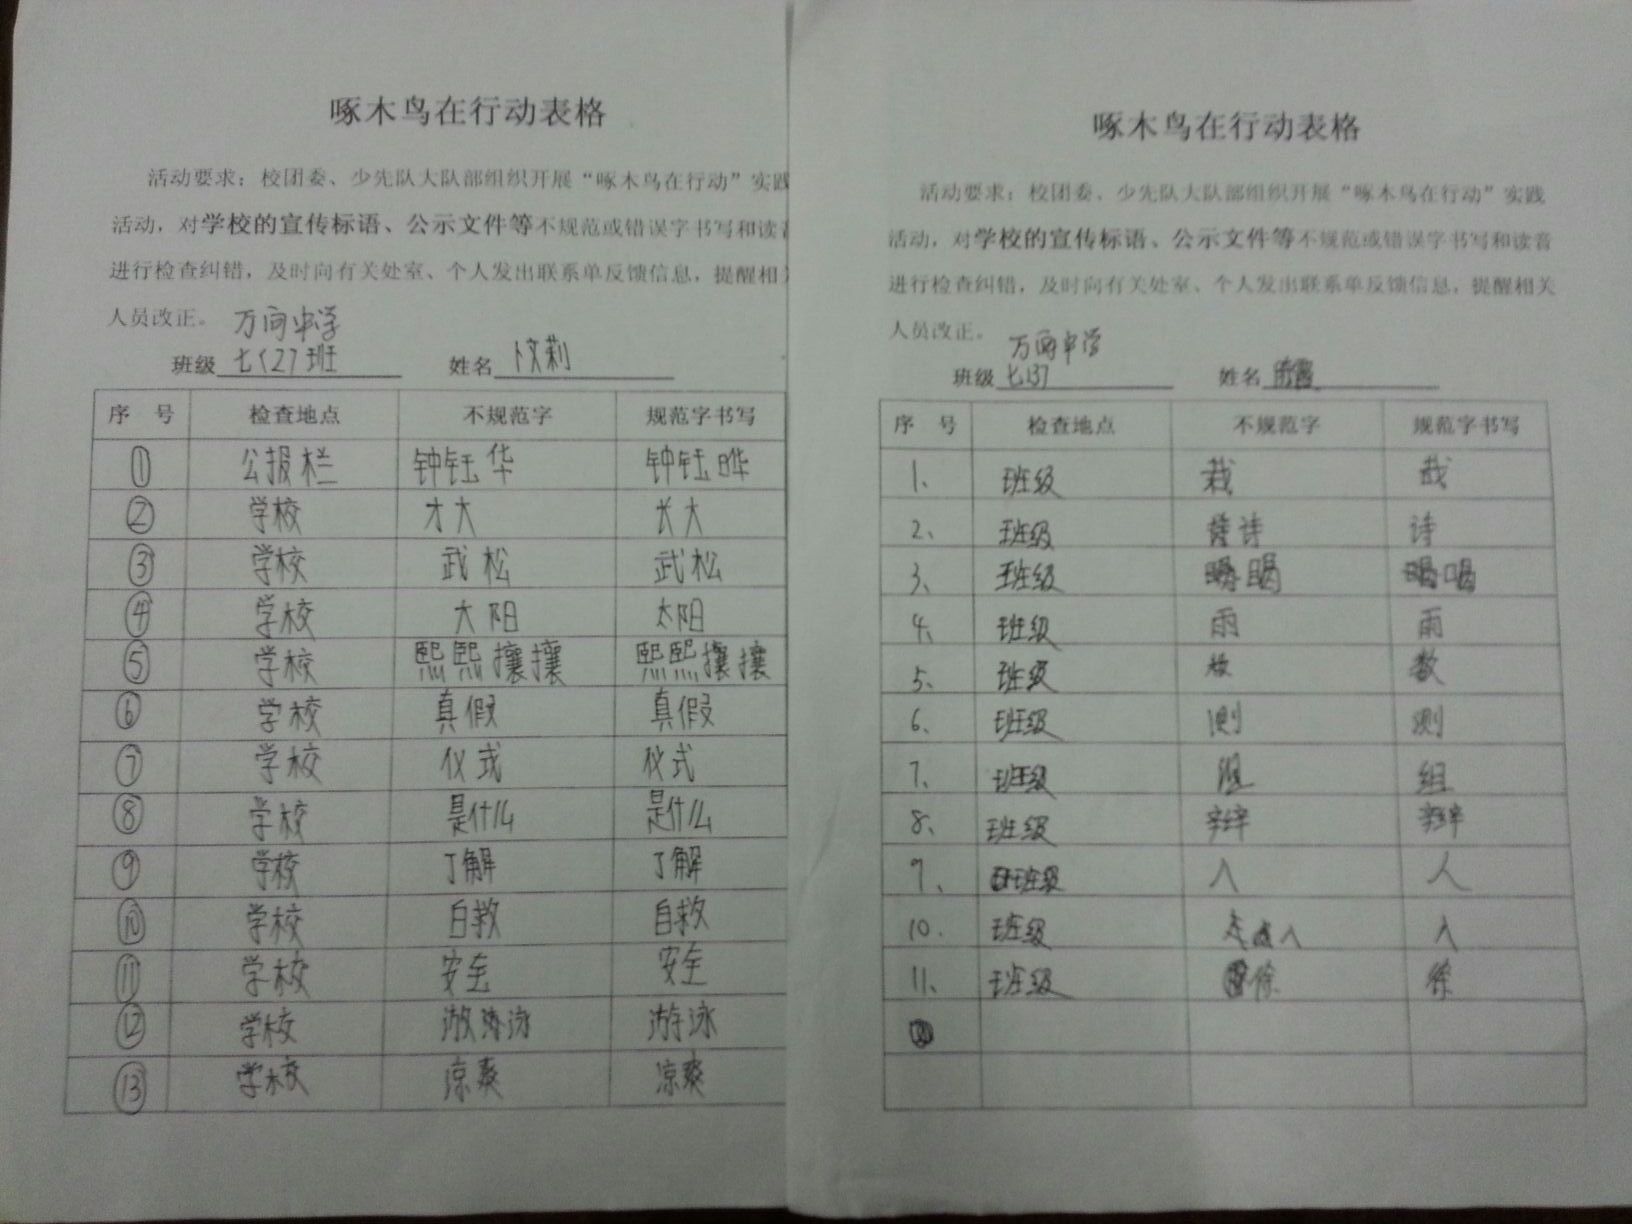 啄木鸟在行动表格
活动要求：校团委、少先队大队部组织开展“啄木鸟在行动”实践
活动，对学校的宣传标语、公示文件等不规范或错误字书写和读音
进行检查纠错，及时向有关处室、个人发出联系单反馈信息，提醒相
人员改正。 万向中学
班级 七(2)班 姓名 卜文莉
序 号 检查地点 不规范字 规范字书写
① 公报栏 钟钰华 钟钰晔
② 学校 才大 长大
③ 学校 武松 武松
④ 学校 大阳 太阳
⑤ 学校 熙熙攘攘 熙熙攘攘
⑥ 学校 真假 真假
⑦ 学校 仪式 仪式
⑧ 学校 是什么 是什么
⑨ 学校 了解 了解
⑩ 学校 白救 自救
⑪ 学校 安全 安全
⑫ 学校 游泳 游泳
⑬ 学校 凉爽 凉爽
啄木鸟在行动表格
活动要求：校团委、少先队大队部组织开展“啄木鸟在行动”实践
活动，对学校的宣传标语、公示文件等不规范或错误字书写和读音
进行检查纠错，及时向有关处室、个人发出联系单反馈信息，提醒相关
人员改正。 万向中学
班级 七(3) 姓名
序 号 检查地点 不规范字 规范字书写
1、 班级 栽 哉
2、 班级 诗 诗
3、 班级 喝
4、 班级 雨 雨
5、 班级 数
6、 班级 测 测
7、 班级 组
8、 班级 辩
9、 班级 入 人
10. 班级 入 入
11、 班级 徐 徐